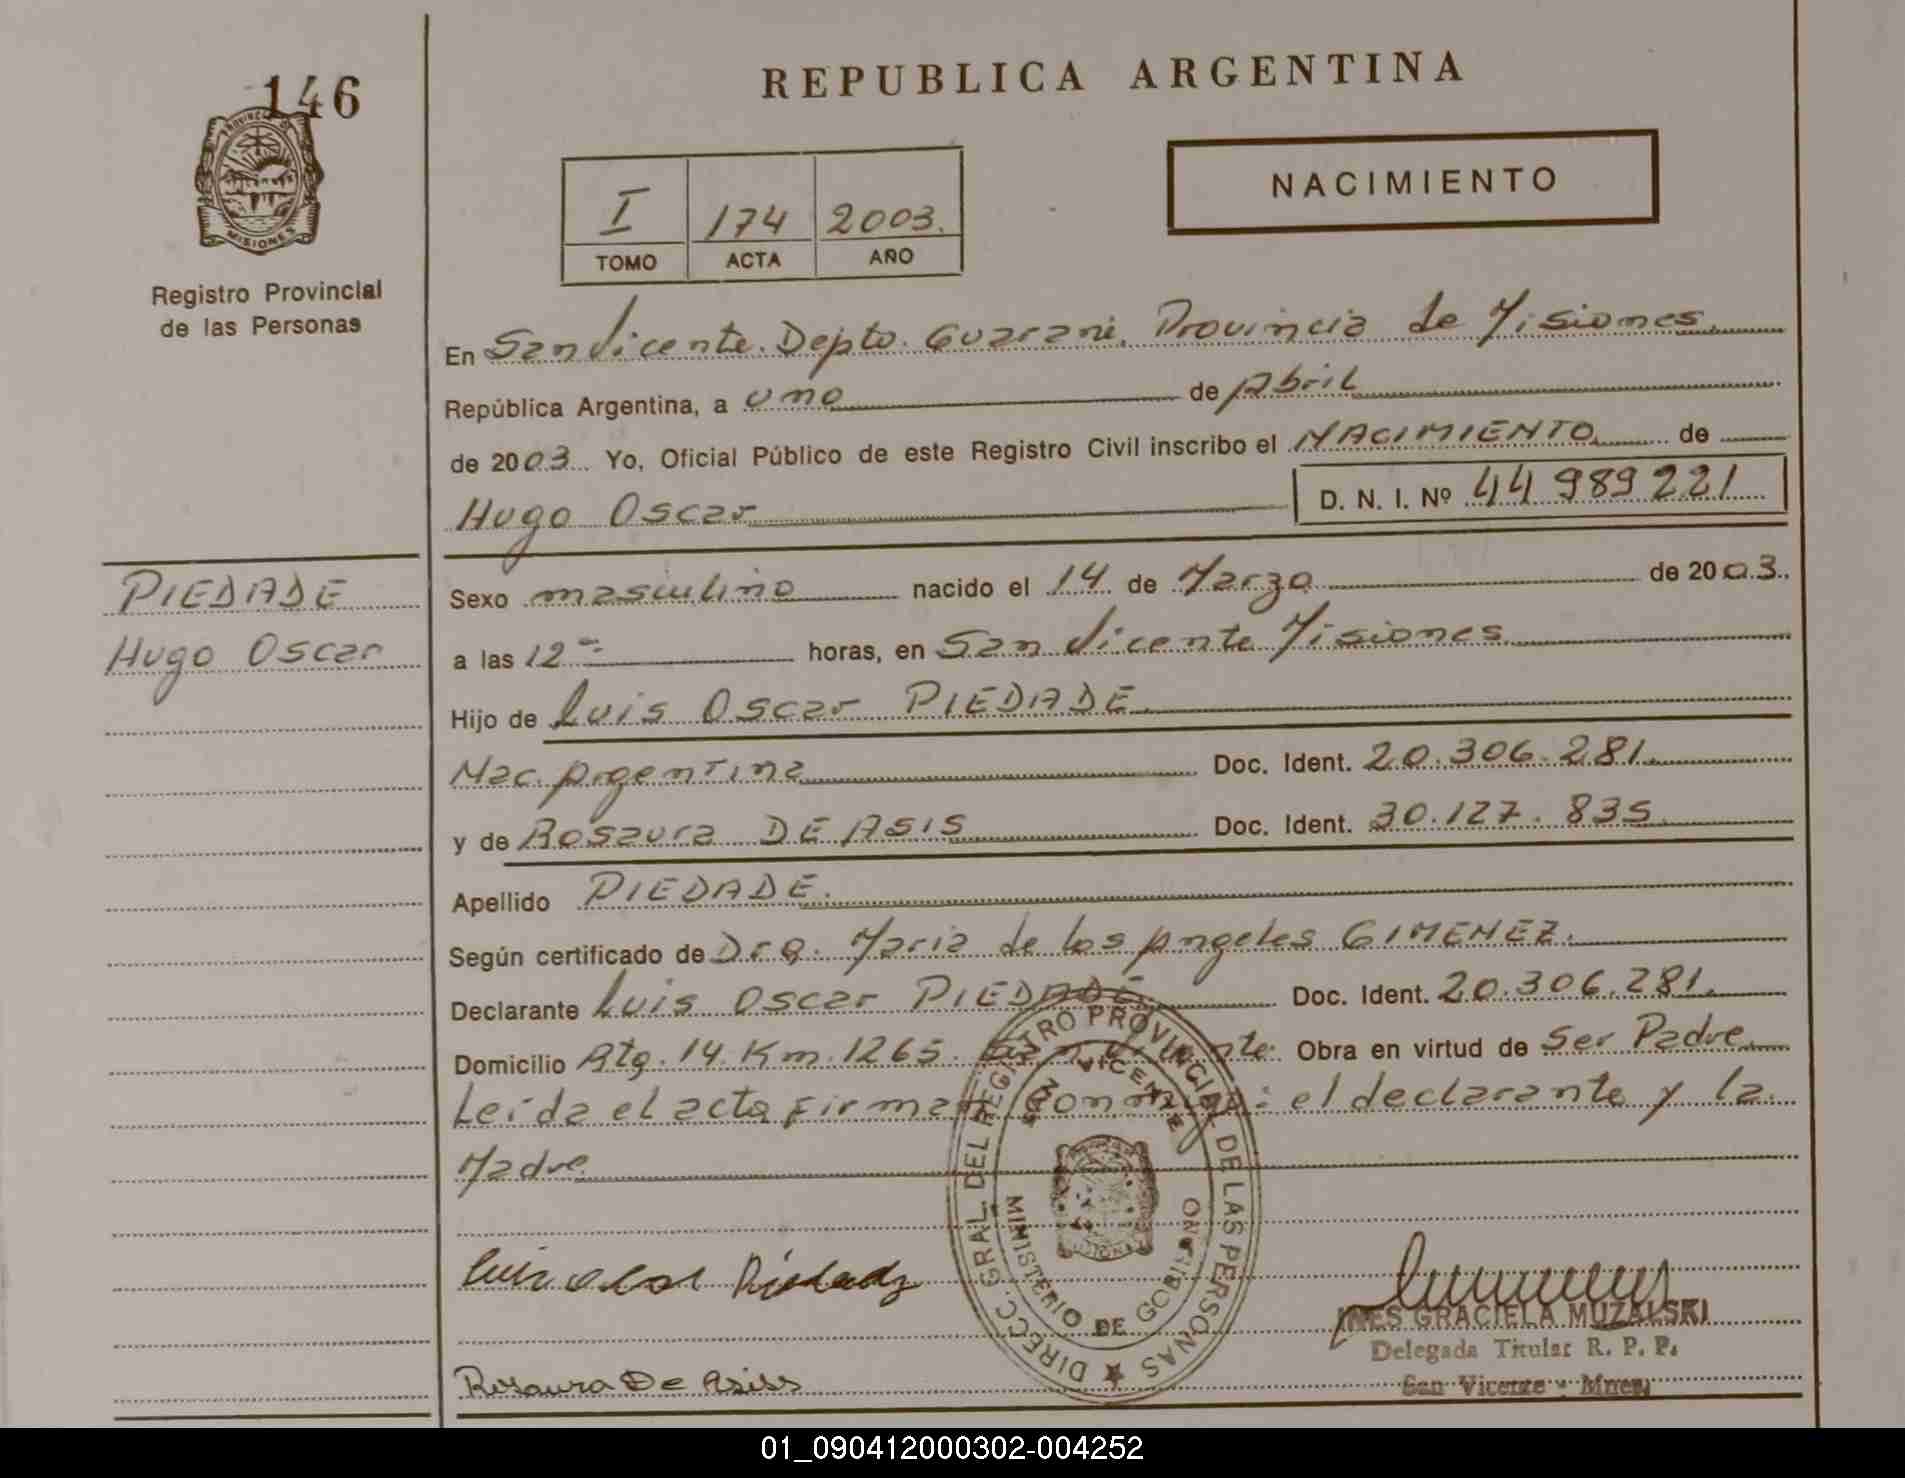 146
REPUBLICA ARGENTINA
PROVINCIA DE
MISIONES
NACIMIENTO
I 174 2003.
TOMO ACTA AÑO
Registro Provincial
de las Personas
En San Vicente. Depto. Guarani. Provincia de Misiones.
República Argentina, a uno de Abril
de 2003. Yo, Oficial Público de este Registro Civil inscribo el NACIMIENTO de
Hugo Oscar D. N. I. Nº 44 989221
PIEDADE
Hugo Oscar
Sexo masculino nacido el 14 de Marzo de 2003.
a las 12= horas, en San Vicente Misiones
Hijo de Luis Oscar PIEDADE
Nac. Argentina Doc. Ident. 20.306.281.
y de Rosaura DE ASIS Doc. Ident. 30.127.835
Apellido PIEDADE.
Según certificado de Dra. Maria de los Angeles GIMENEZ.
Declarante Luis Oscar PIEDADE Doc. Ident. 20.306.281.
Domicilio Rtg. 14. Km. 1265. San Vicente. Obra en virtud de Ser Padre
Leída el acta firman conmigo: el declarante y la
Madre
DIRECC. GRAL. DEL REGISTRO PROVINCIAL DE LAS PERSONAS
SAN VICENTE
MINISTERIO DE GOBIERNO
Luis Oscar Piedade
INES GRACIELA MUZALSKI
Delegada Titular R. P. P.
San Vicente - Mnes.
Rosaura De Asiss
01_090412000302-004252